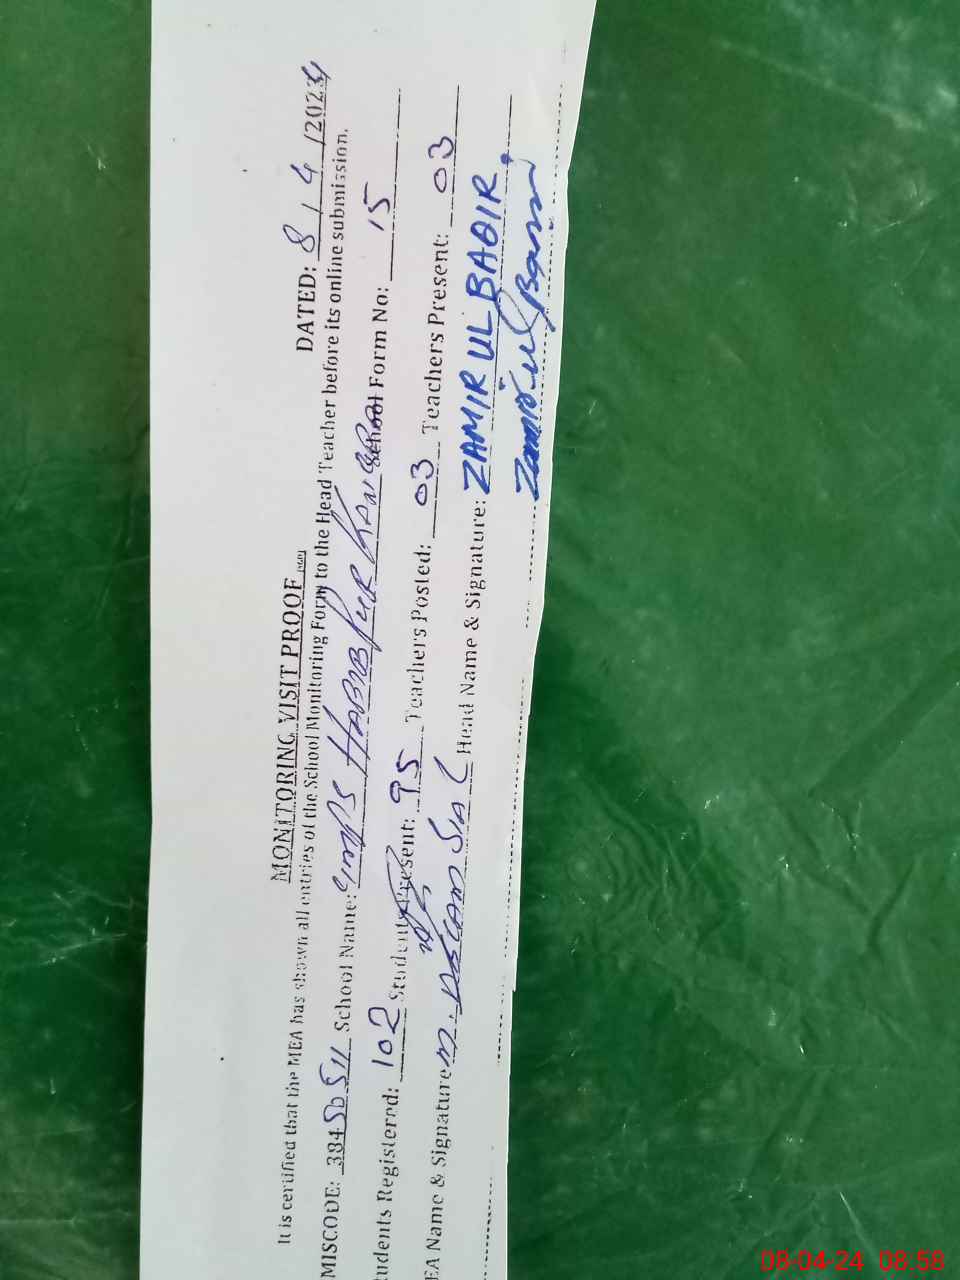 MONITORING VISIT PROOF DATED: 8 / 4 /2024
It is certified that the MEA has shown all entries of the School Monitoring Form to the Head Teacher before its online submission.
MISCODE: 384 50511 School Name: GMPS HABIB PUR School Form No: 15
tudents Registered: 102 Students Present: 95 Teachers Posted: 03 Teachers Present: 03
EA Name & Signature M. ASLAM SIAL Head Name & Signature: ZAMIR UL BAQIR.
08-04-24 08:58